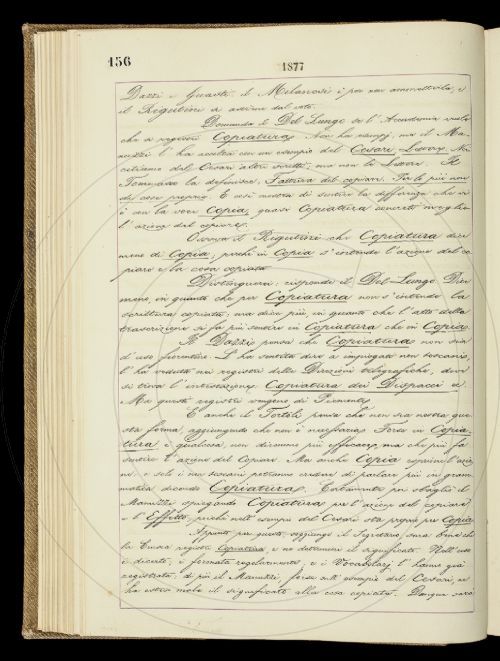 156
1877
Dazzi e Guasti, il Milanesi è per non ammetterla, e
il Rigutini si astiene dal voto.
Domanda il Del Lungo se l'Accademia vuole
che si registri Copiatura. Non ha esempj, ma il Ma-
nuzzi l'ha accolta con un esempio del Cesari, Lettere. Noi
citiamo del Cesari altri scritti, ma non le Lettere. Il
Tommaseo la definisce, Fattura del copiare. Per lo più non
dis esse proprie. E così mostra di sentire la differenza che vi
è con la voce Copia, quasi Copiatura denoti meglio
l'azione del copiare.
Osserva il Rigutini che Copiatura dice
meno di Copia, perchè in Copia s'intende l'azione del co-
piare e la cosa copiata.
Distinguerei, risponde il Del-Lungo. Dice
meno, in quanto che per Copiatura non s'intende la
scrittura copiata; ma dice più, in quanto che l'atto della
trascrizione si fa più sentire in Copiatura che in Copia.
Il Dazzi pensa che Copiatura non sia
d'uso fiorentino. L'ha sentita dire a impiegati non toscani,
l'ha veduta nei registri delle Direzioni telegrafiche, dove
si trova l'intestazione: Copiatura dei Dispacci
Ma questi registri vengono di Piemonte.
E anche il Tortoli pensa che non sia nostra que-
sta forma, aggiungendo che non è necessaria. Forse in Copia-
tura è qualcosa, non diremo più efficace, ma che più fa
sentire l'azione del Copiare. Ma anche Copia esprime l'azio-
ne, e solo i non toscani potranno credere di parlare più in gram-
matica dicendo Copiatura. Certamente poi sbaglia il
Manuzzi spiegando Copiatura per l'azione del copiare
e l'Effetto, perchè nell'esempio del Cesari sta proprio per Copia.
Appunto per questo, soggiunge il Segretario, sarà bene che
la Crusca registri Copiatura, e ne determini il significato. Nell'uso
è, dicerto; è formata regolarmente; e i Vocabolarj l'hanno già
registrata; di più il Manuzzi, forse sull'esempio del Cesari, ne
ha esteso male il significato alla cosa copiata. Dunque sarà